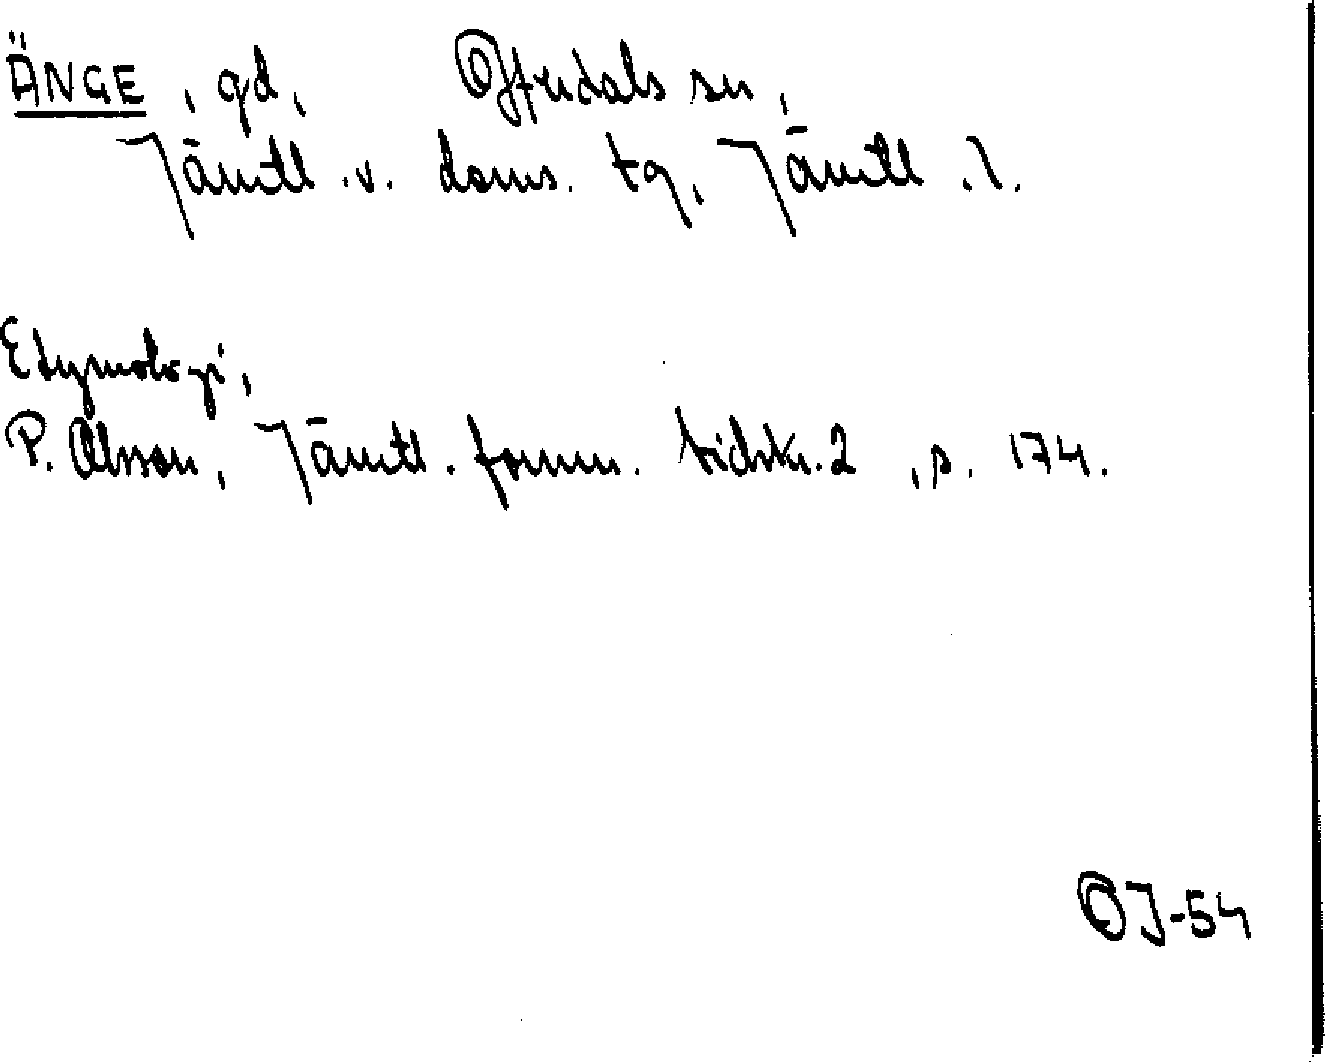 ÄNGE, gd, Offerdals sn,
Jämtl. v. doms. tg, Jämtl. l.
Etymologi,
P. Olsson, Jämtl. fornm. tidskr. 2, s. 174.
OJ-54